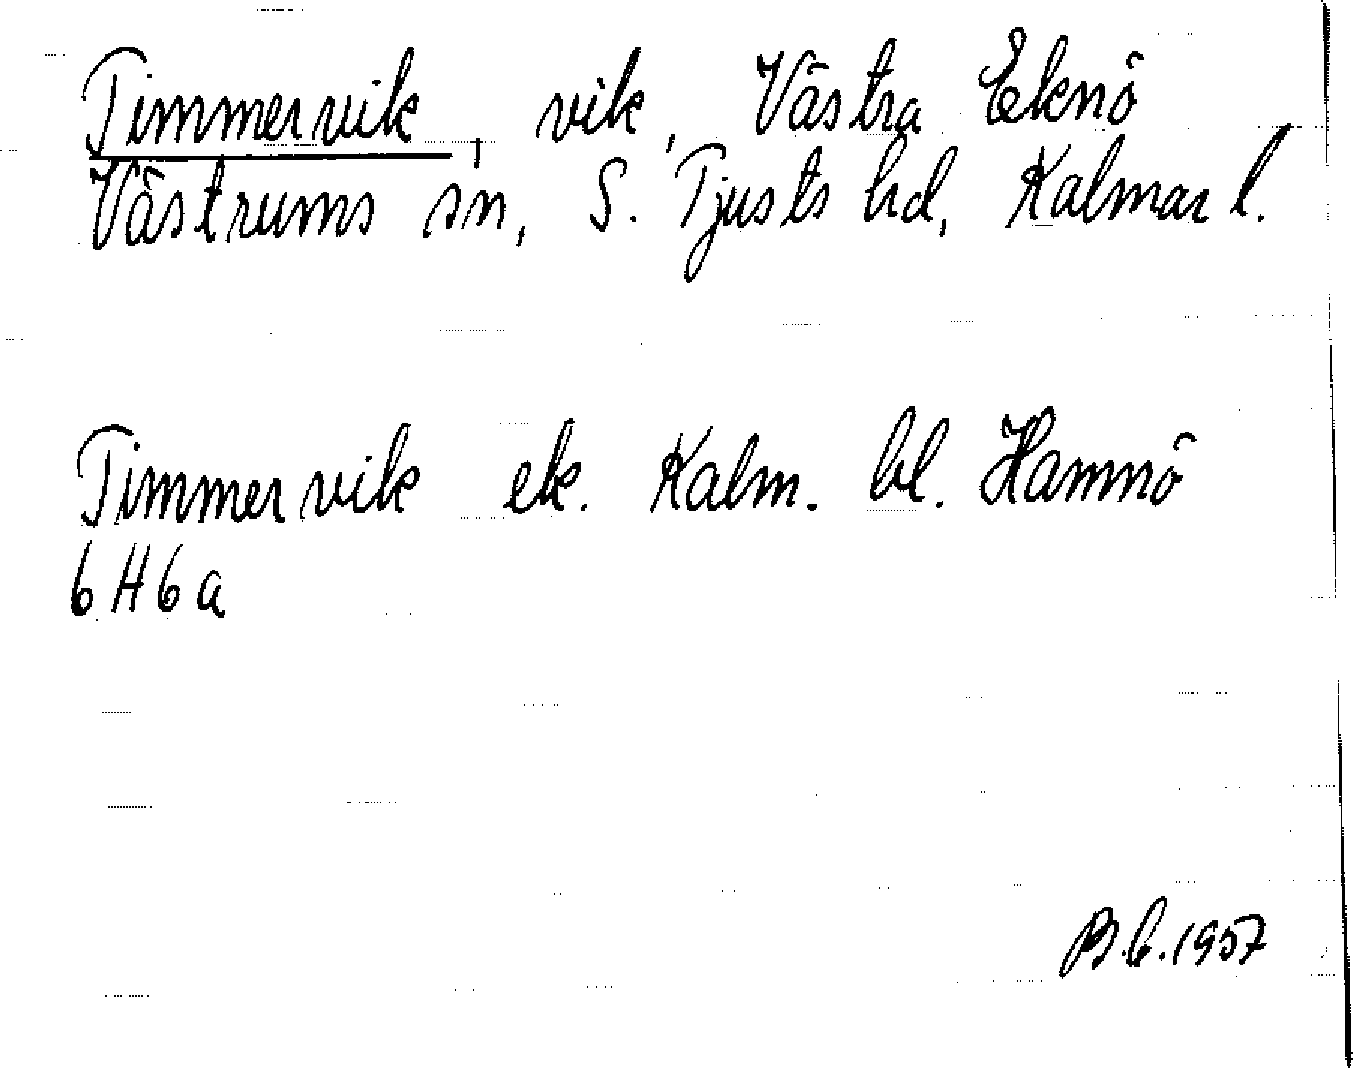 Timmervik, vik, Västra Eknö
Västrums sn, S. Tjusts hd, Kalmar l.
Timmervik ek. Kalm. bl. Hamnö
6H6a
B.b.1957